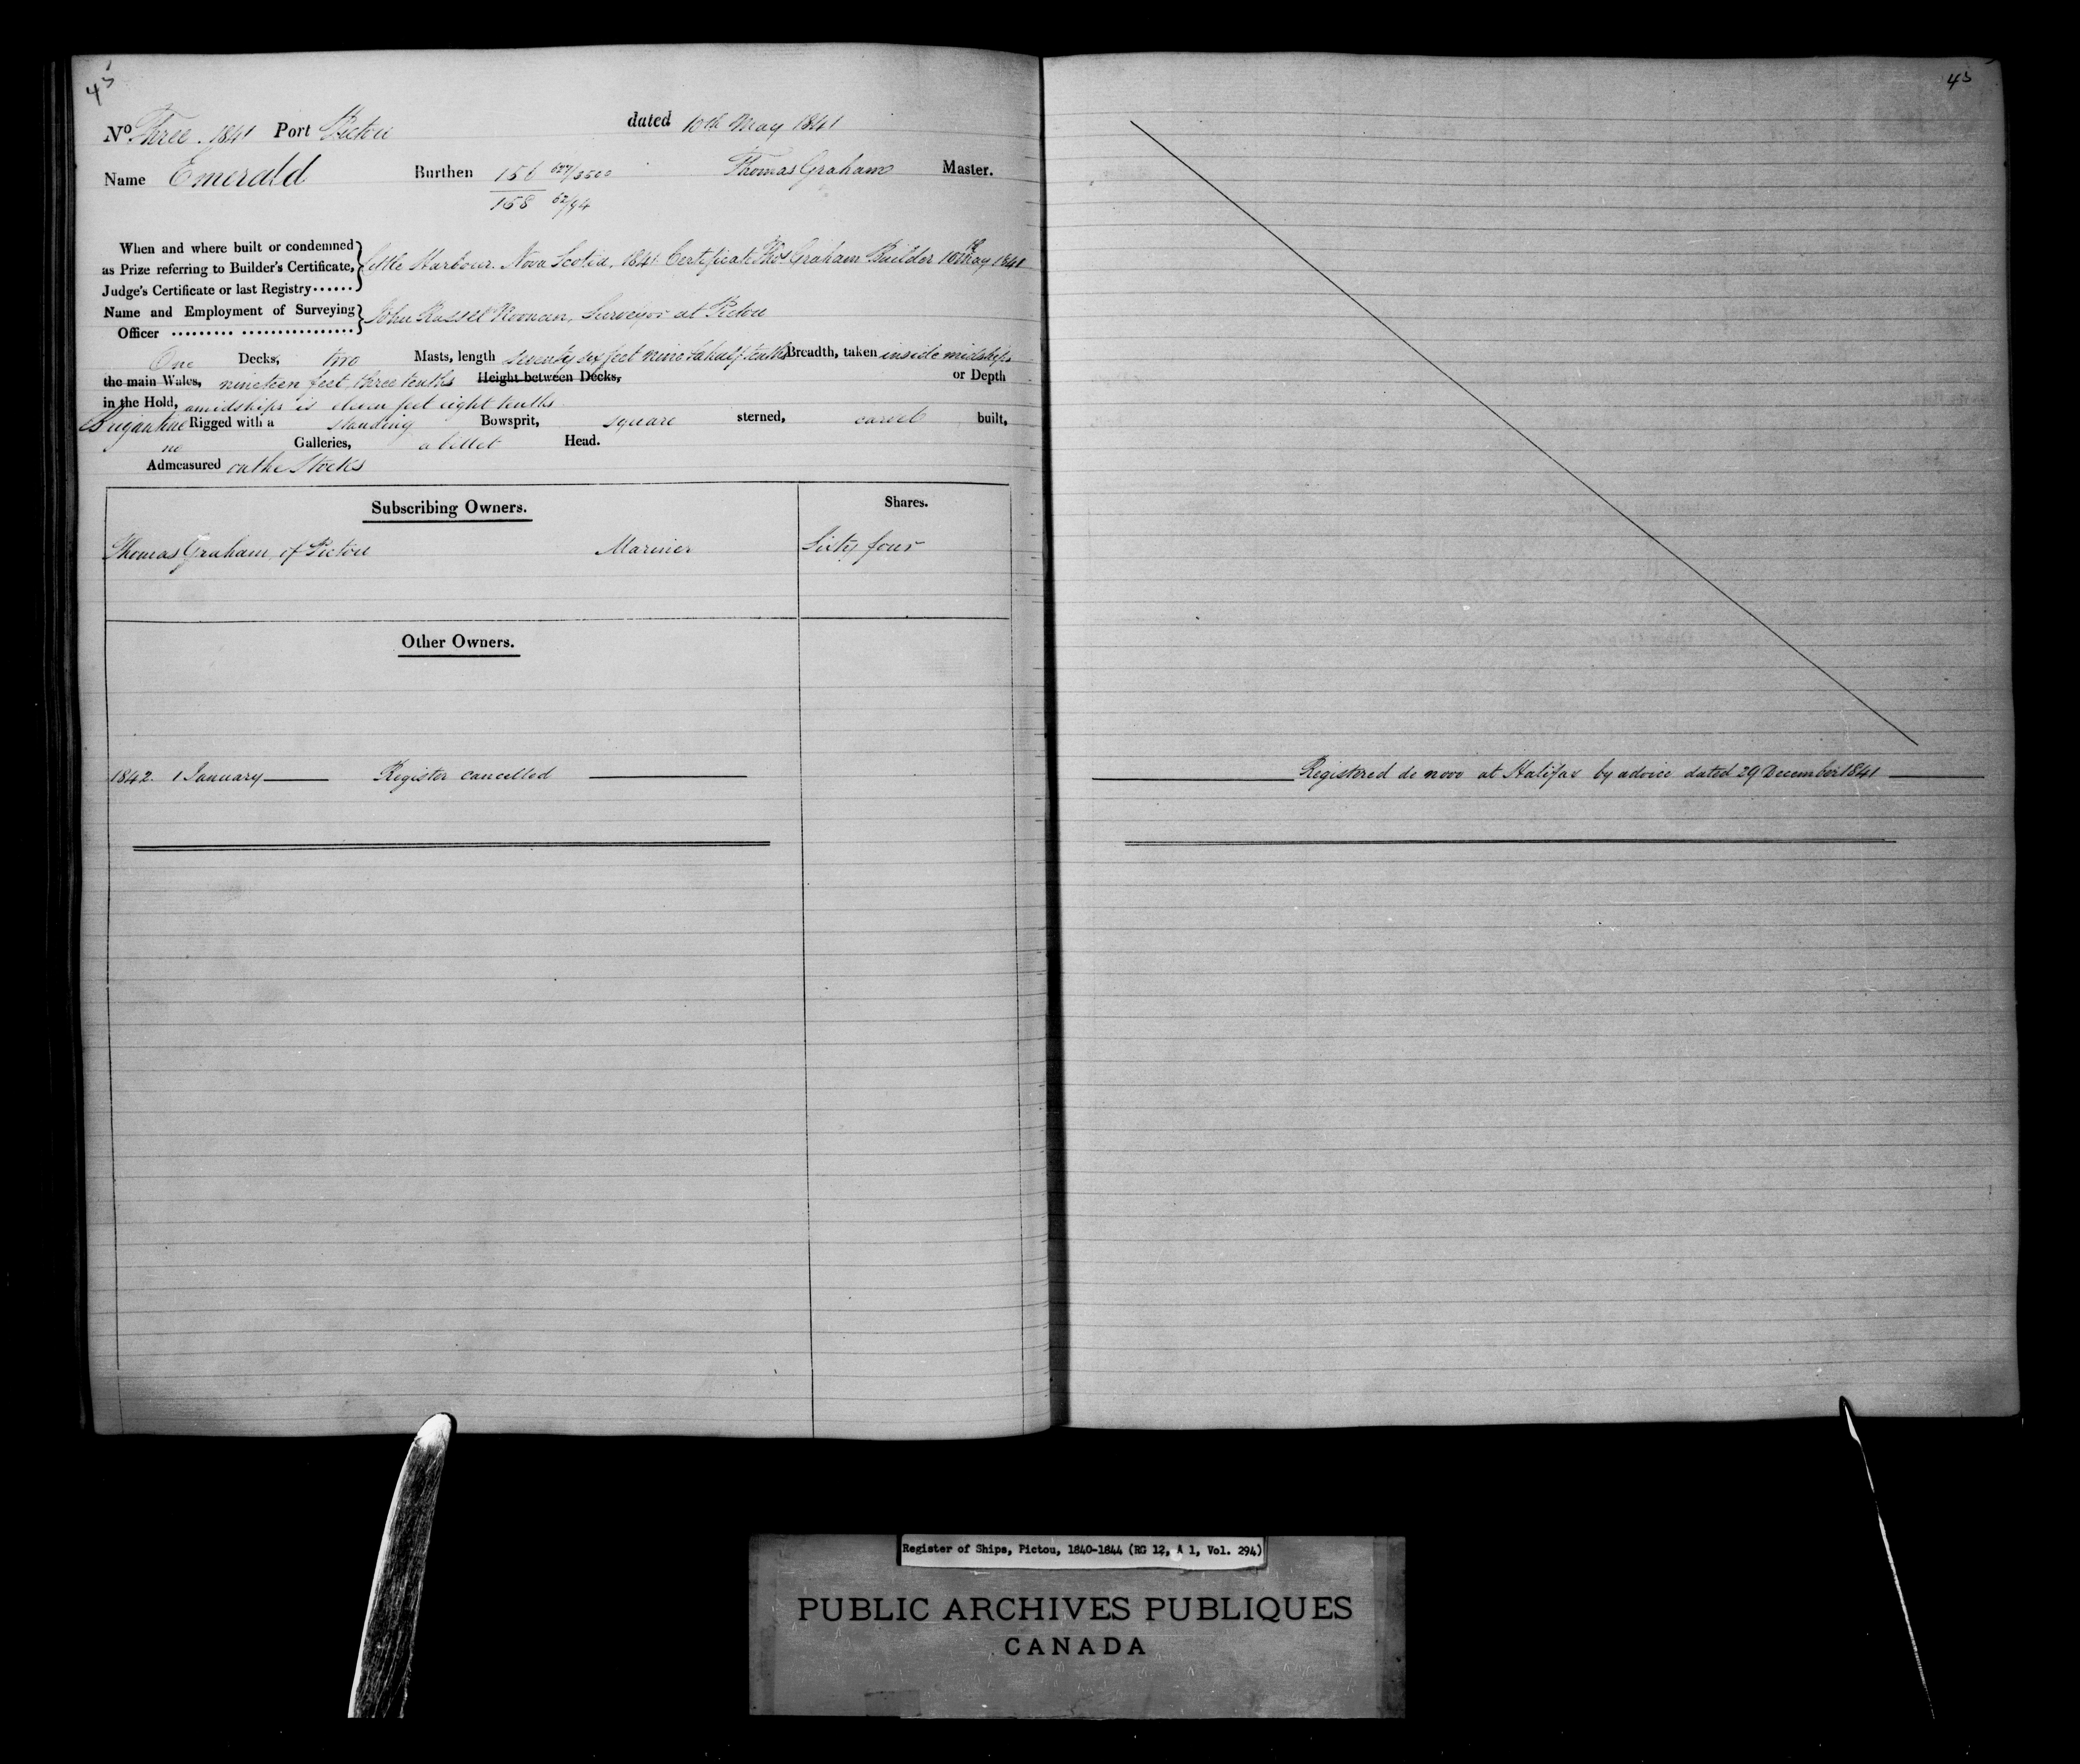 43
No Three. 1841 Port Pictou dated 10th May 1841
Name Emerald Burthen 156 627/3500 Thomas Graham Master.
158 62/94
When and where built or condemned
as Prize referring to Builder's Certificate, Little Harbour. Nova Scotia. 1841 Certificate Thos Graham Builder 10th May 1841
Judge's Certificate or last Registry
Name and Employment of Surveying John Russel Noonan, Surveyor at Pictou
Officer
One Decks, two Masts, length seventy six feet nine & a half tenths Breadth, taken inside midships
the main Wales, nineteen feet three tenths Height between Decks, or Depth
in the Hold, amidships is eleven feet eight tenths
Brigantine Rigged with a standing Bowsprit, square sterned, carvel built,
no Galleries, a billet Head.
Admeasured on the Stocks
Subscribing Owners. Shares.
Thomas Graham, of Pictou Mariner Sixty four
Other Owners.
1842. 1 January Register cancelled
43
Registered de novo at Halifax by advice dated 29 December 1841
Register of Ships, Pictou, 1840-1844 (RG 12, A 1, Vol. 294)
PUBLIC ARCHIVES PUBLIQUES
CANADA